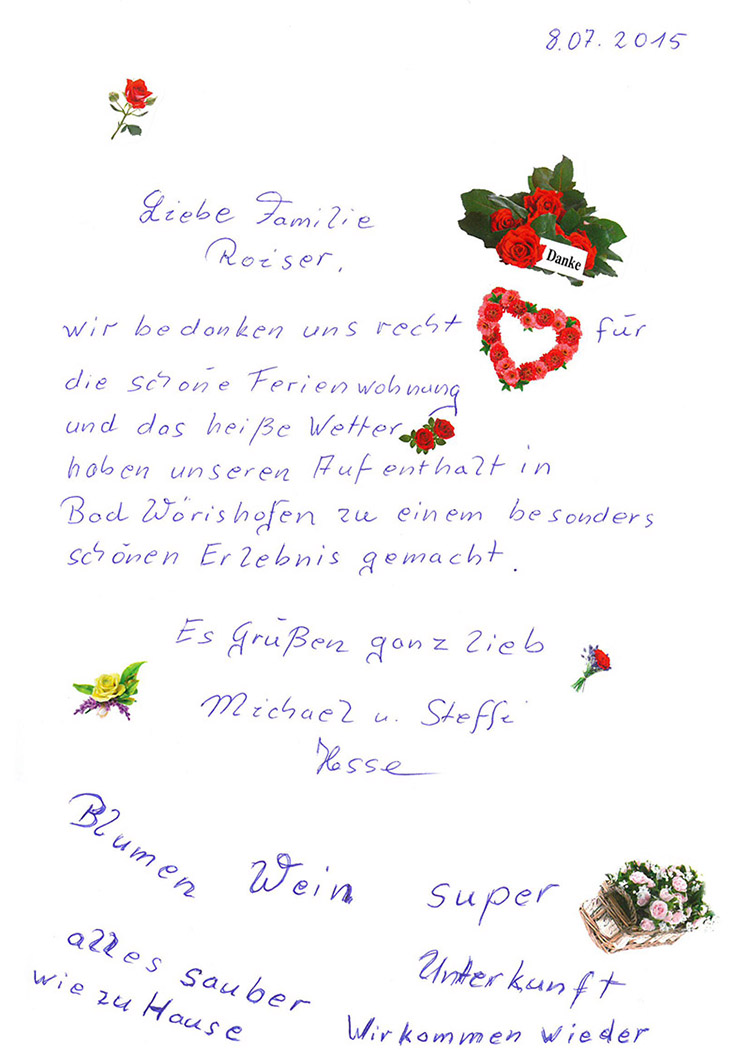 8.07.2015
Liebe Familie
Roiser,
Danke
wir bedanken uns recht für
die schöne Ferienwohnung
und das heiße Wetter
haben unseren Aufenthalt in
Bad Wörishofen zu einem besonders
schönen Erlebnis gemacht.
Es Grüßen ganz lieb
Michael u. Steffi
Hesse
Blumen Wein super
alles sauber Unterkunft
wie zu Hause Wir kommen wieder